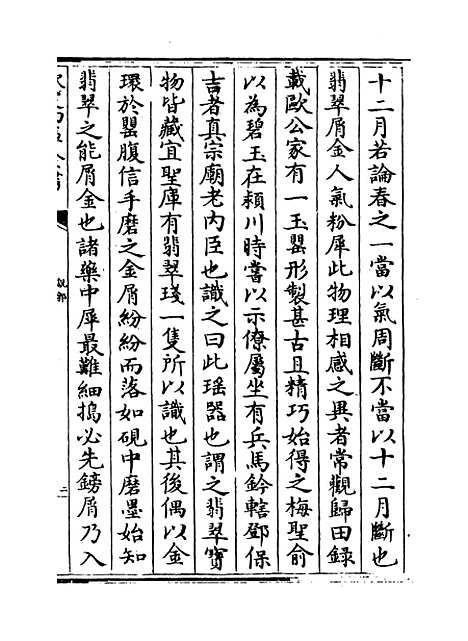 十二月若論春之一當以氣周斷不當以十二月斷也
翡翠屑金人氣粉犀此物理相感之異者常觀歸田録
載歐公家有一玉罌形製甚古且精巧始得之梅聖俞
以為碧玉在潁川時嘗以示僚屬坐有兵馬鈐轄鄧保
吉者真宗廟老内臣也識之曰此瑶器也謂之翡翠寳
物皆藏宜聖庫有翡翠琖一隻所以識也其後偶以金
環於罌腹信手磨之金屑紛紛而落如硯中磨墨始知
翡翠之能屑金也諸藥中犀最難細搗必先鎊屑乃入
說郛
二